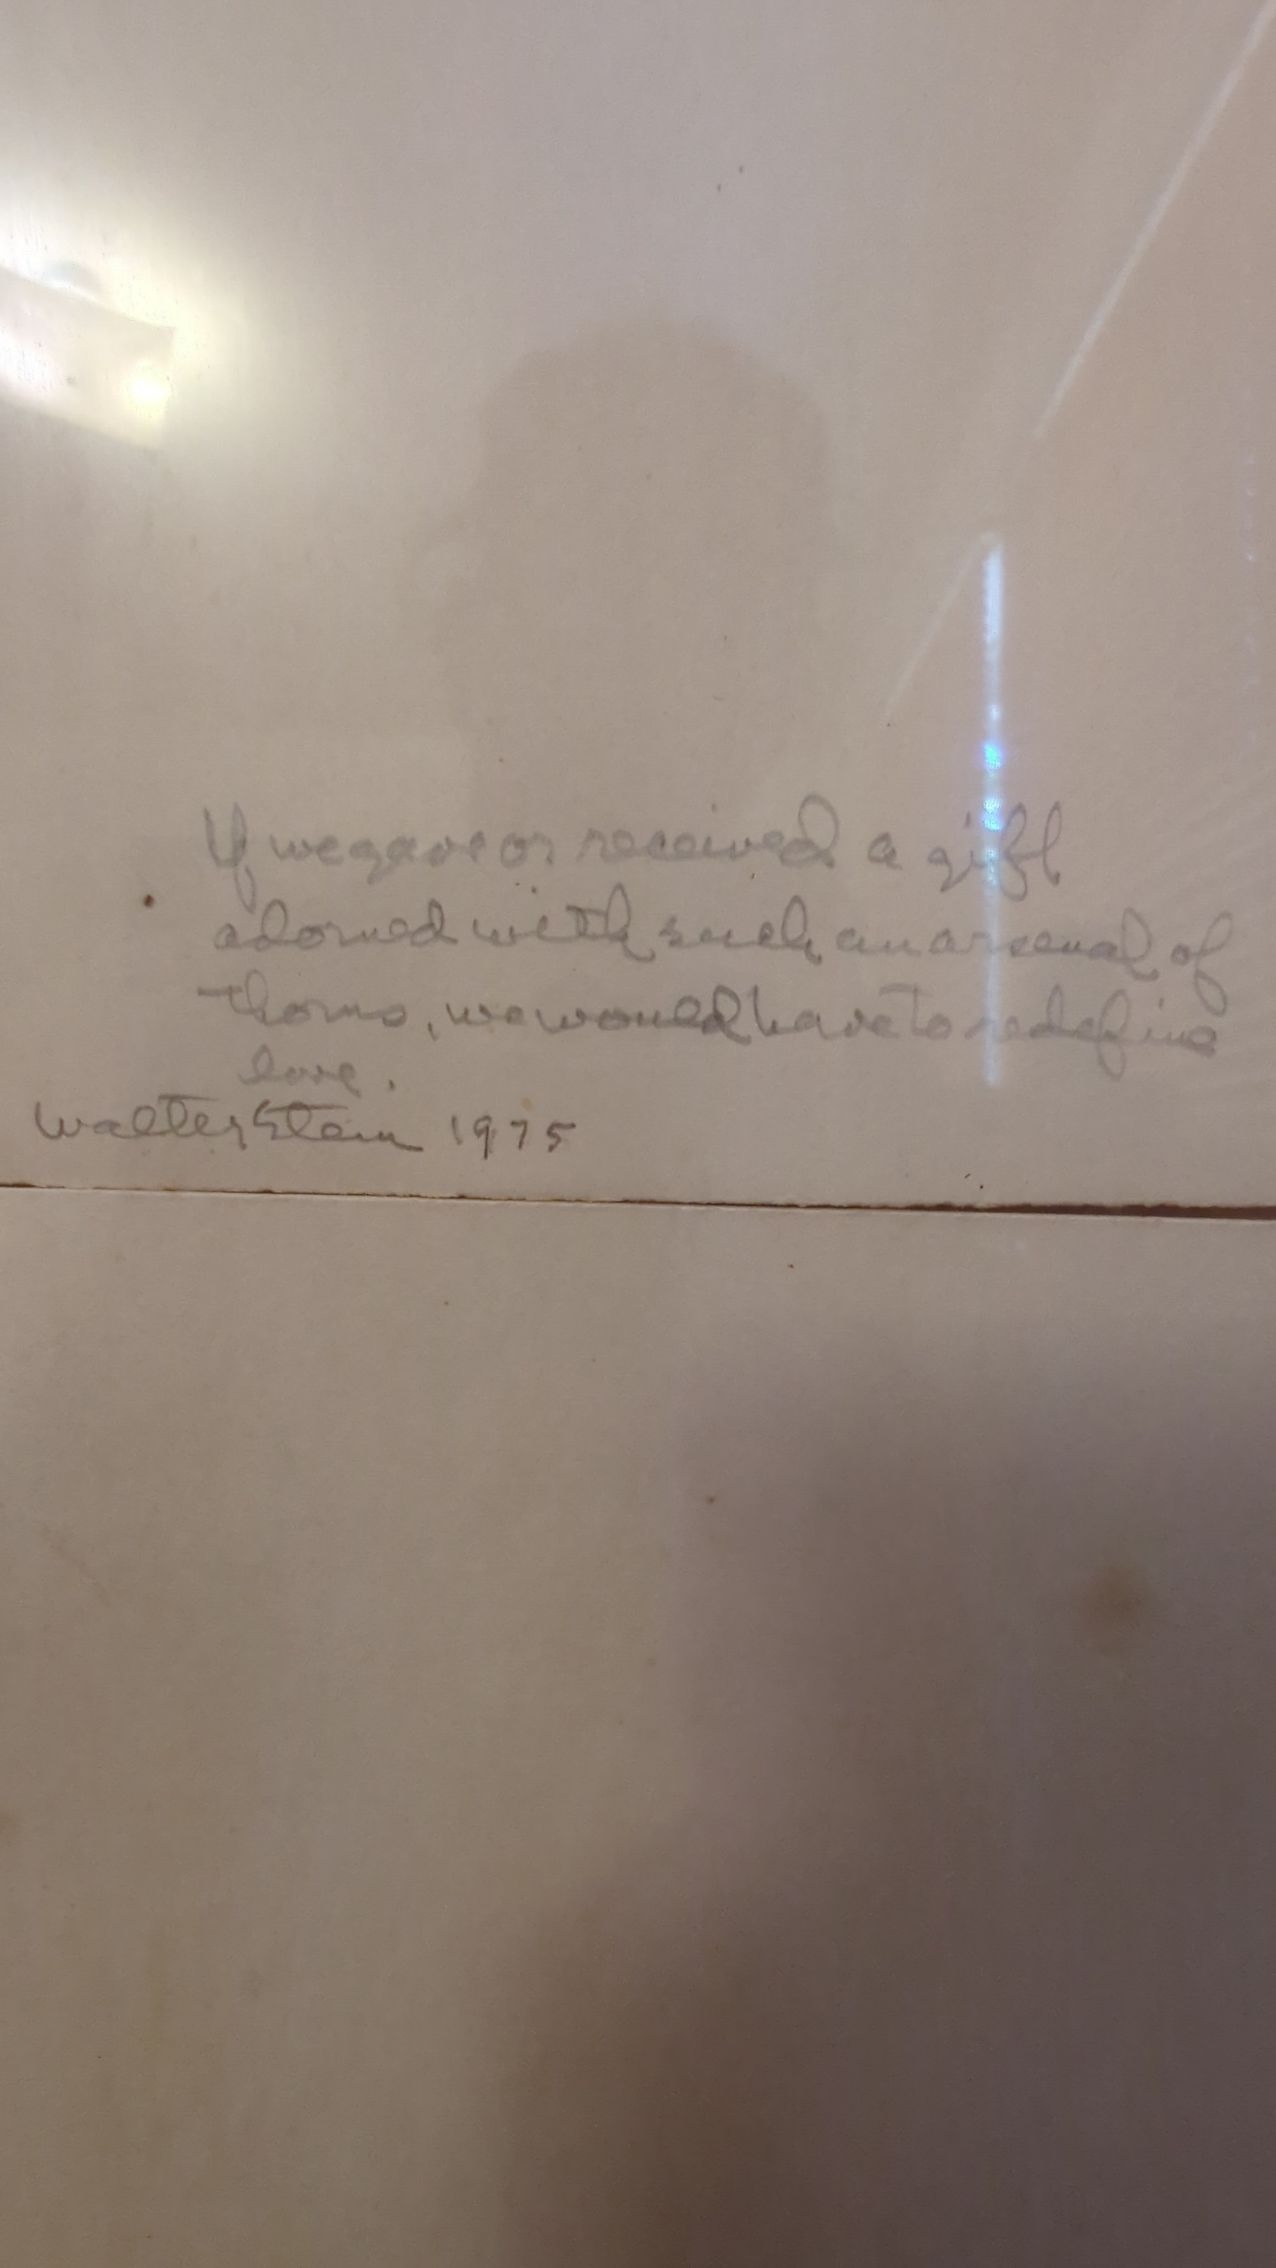 If we gave or received a gift
adorned with such an arsenal of
thorns, we would have to redefine
love.
Walter Stein 1975